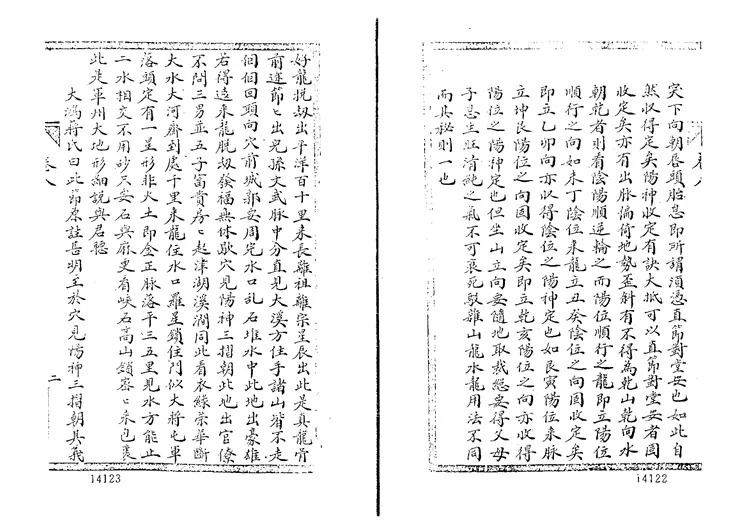 突下向朝唇頭胎息即所謂須憑直節對堂安也如此自
然收得定矣陽神收定有訣大抵可以直節對堂安者固
收定矣亦有出脉偏倚地勢歪斜有不得為乾山乾向水
朝乾者則看陰陽順逆輪之而陽位順行之龍即立陽位
順行之向如未丁陰位来龍立丑癸陰位之向固收定矣
即立乙卯向亦收得陰位之陽神定也如艮寅陽位来脉
立坤艮陽位之向固收定矣即立乾亥陽位之向亦收得
陽位之陽神定也但坐山立向要随地取裁總要得父母
子息生旺清純之氣不可衰死駁雜山龍水龍用法不同
而其秘則一也
14122
好龍脱刼出平洋百十里来長離祖離宗星辰出此是真龍骨
前途節〻出兒孫文武脉中分直見大溪方住手諸山皆不走
個個回頭向穴前城郭要周完水口乱石堆水中此地出豪雄
若得遠来龍脱刼發福無休歇穴見陽神三摺朝此地出官僚
不問三男並五子富貴房〻起津湖溪澗同此看衣緑榮華斷
大水大河齊到處千里来龍住水口羅星鎖住門似大將屯軍
落頭定有一星形非火土即金正脉落平三五里見水方能止
二水相交不用砂只要石與麻更有峡石高山鎖密〻来包裹
此是軍州大地形細說與君聽
大鴻蔣氏曰此節原註甚明至於穴見陽神三摺朝其義
卷八
二
14123